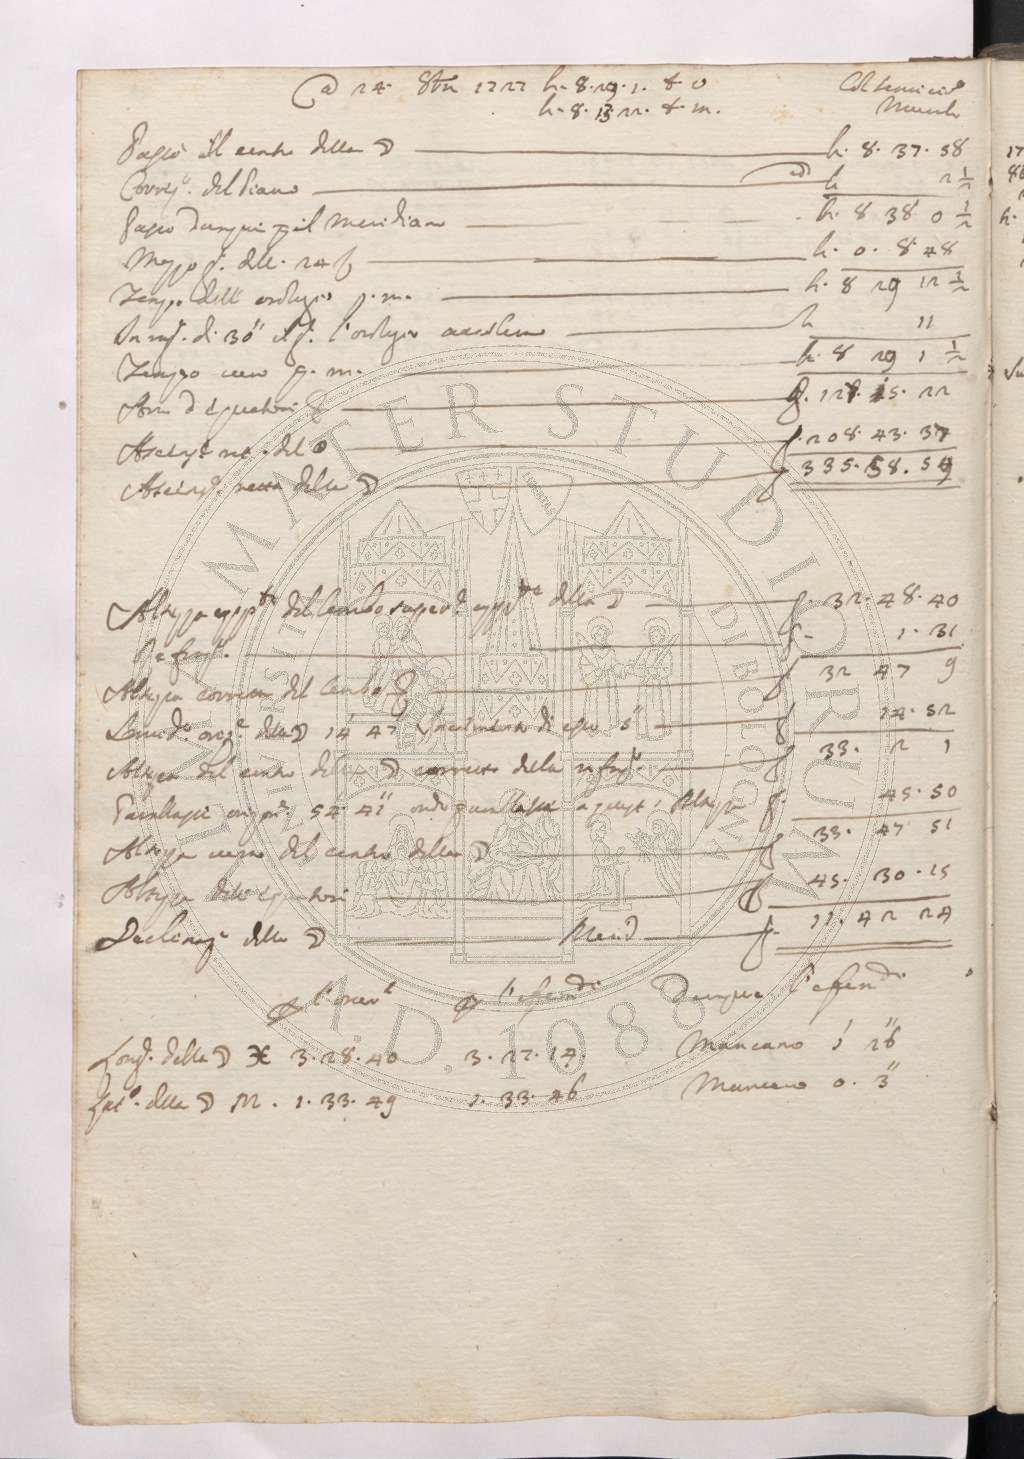 24 8bre 1727 h. 8. 29. 1. t. v
Col semicir°
h. 8. 13. 22. t. m.
Murale
Passò il centro della ☽ h. 8. 37. 58
Correz.e del Piano add h 2 1/2
Passò dunque p il Meridiano h. 8 38 0 1/2
Mezzo g. delli 24 h. 0. 8. 48
Tempo dell' orologio p. m. h. 8 29 12 1/2
di 30" l'orologio h 11
Tempo vero p. m. h. 8 29 1 1/2
Arco d Equatore g. 127. 15. 22
Ascens.e ret. del ☉ g. 208. 43. 37
Ascens.e retta della ☽ g 335. 58. 59
Altezza app.te del lembo super.e app.te della ☽ g. 32. 48. 40
Refraz.e g. 1. 31
Altezza corretta del lembo g 32 47 9
Semid.o oriz.e della ☽ 14' 47" Incremento di esso 5" 14. 52
Altezza del centro della ☽ corretta dalla refraz.e g 33. 2 1
Parallasse orizon.e 54' 41" onde parallasse a quest' Altezza g. 45. 50
Altezza vera del centro della ☽ g 33. 47 51
Altezza dell' Equatore g 45. 30. 15
Declinaz.e della ☽ Merid g. 11. 42 24
p l'osser.e p l'efemdi Dunque l'efemdi
Long. della ☽ ♓ 3. 28. 40 3. 27. 14. Mancano 1' 26"
Lat.e della ☽ M. 1. 33. 49 1. 33. 46 Mancano 0. 3"
ALMA MATER STUDIORUM
UNIVERSITÀ DI BOLOGNA
LIBERTAS
A.D. 1088